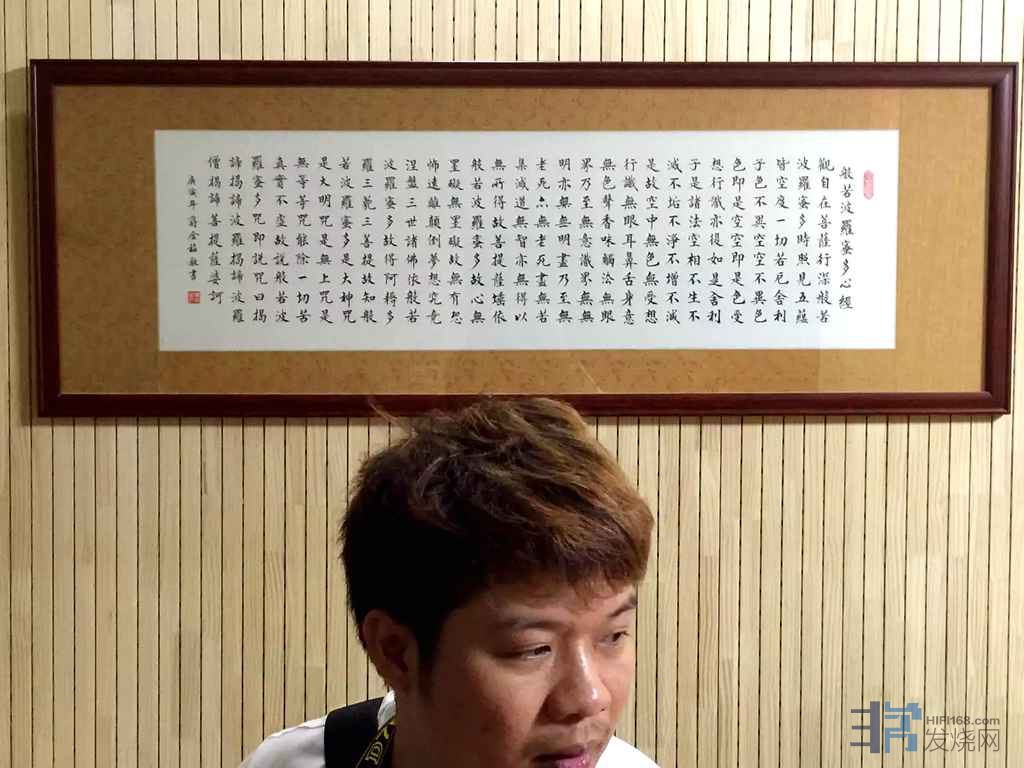 般若波羅蜜多心經
觀自在菩薩行深般若
波羅蜜多時照見五蘊
皆空度一切苦厄舍利
子色不異空空不異色
色即是空空即是色受
想行識亦復如是舍利
子是諸法空相不生不
滅不垢不淨不增不減
是故空中無色無受想
行識無眼耳鼻舌身意
無色聲香味觸法無眼
界乃至無意識界無無
明亦無無明盡乃至無
老死亦無老死盡無苦
集滅道無智亦無得以
無所得故菩提薩埵依
般若波羅蜜多故心無
罣礙無罣礙故無有恐
怖遠離顛倒夢想究竟
涅盤三世諸佛依般若
波羅蜜多故得阿耨多
羅三藐三菩提故知般
若波羅蜜多是大神咒
是大明咒是無上咒是
無等等咒能除一切苦
真實不虛故說般若波
羅蜜多咒即說咒曰揭
諦揭諦波羅揭諦波羅
僧揭諦菩提薩婆訶
庚寅年 敬書
HIFI168.com
发烧网